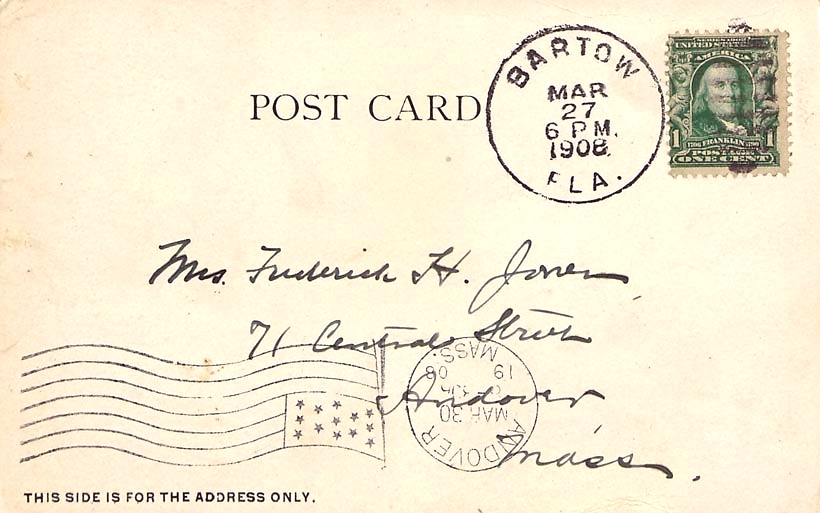 POST CARD
BARTOW
MAR
27
6 P M.
1908
FLA.
SERIES 1902
UNITED STATES OF
AMERICA
1 1706 FRANKLIN 1790 1
POSTAGE
ONE CENT
Mrs. Frederick H. Jones
71 Central Street
Andover
Mass.
ANDOVER
MAR 30
19 08
MASS.
THIS SIDE IS FOR THE ADDRESS ONLY.